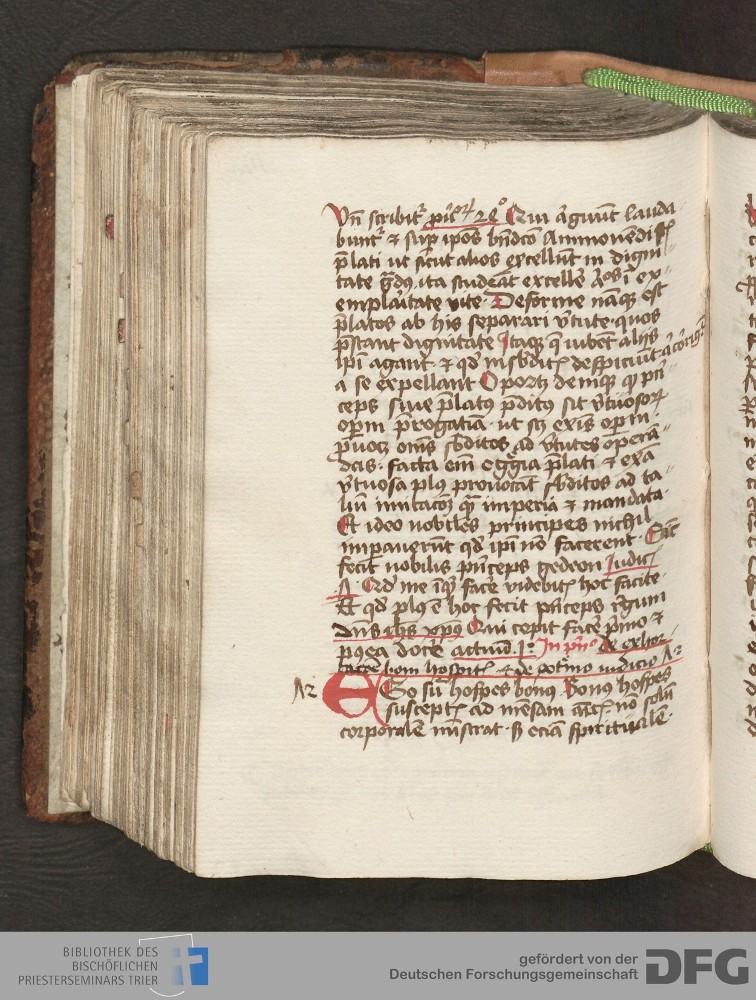 Vn̄ scribit᷑ 24° Qui arguūt lauda
bunt᷑ ⁊ sup ipōs bn̄dcō Ammonēdi st̄
p̄lati ut sicut alios excellūt in digni
tate gdꝰ ita studeāt excellē̓ eos ī ex
emplaritate vite Deforme nāqꝫ est
p̄latos ab his separari v̓tute quos
p̄stant dignitate Itaqꝫ q̄ iubēt alijs
ip̄i agant ⁊ qd̓ in sbditꝭ despiciūt
a se expellant Oportꝫ deniqꝫ qꝫ pri
ceps siue p̄latꝰ p̄ditꝰ sit v̓tuosoꝝ
opm̄ p̄rogatiā ut scꝫ exis opm̄
p̄uocꝫ om̄s sb̓ditos ad v̓tutes operā
das facta em̄ egḡia p̄lati ⁊ exā
v̓tuosa plꝰ prouocāt sb̓ditos ad ta
liū imitacōꝫ qᷓ imperia ⁊ mandata
Et ideo nobiles principes nichil
imp̄auerūt qd̓ ip̄i nō facerent Sic̄
fecit nobilis pn̄ceps gedeon Iudicꝭ
Qd̓ me īqͥ facē̓ videbitꝭ hoc facite
Et qd̓ plꝰ ē hoc fecit pn̄ceps r̄gum
dn̄s ih̄s xp̄us Qui cepit facē̓ p̄mo ⁊
pꝰea docē̓
boni hospitꝭ ⁊ de iudicio
EGo sū hospes bonꝰ Bonꝰ hospes
susceptꝭ ad mēsam nō solū
corporalē mīstrat sꝫ eciā spiritualē
BIBLIOTHEK DES
BISCHÖFLICHEN
PRIESTERSEMINARS TRIER
gefördert von der
Deutschen Forschungsgemeinschaft
DFG